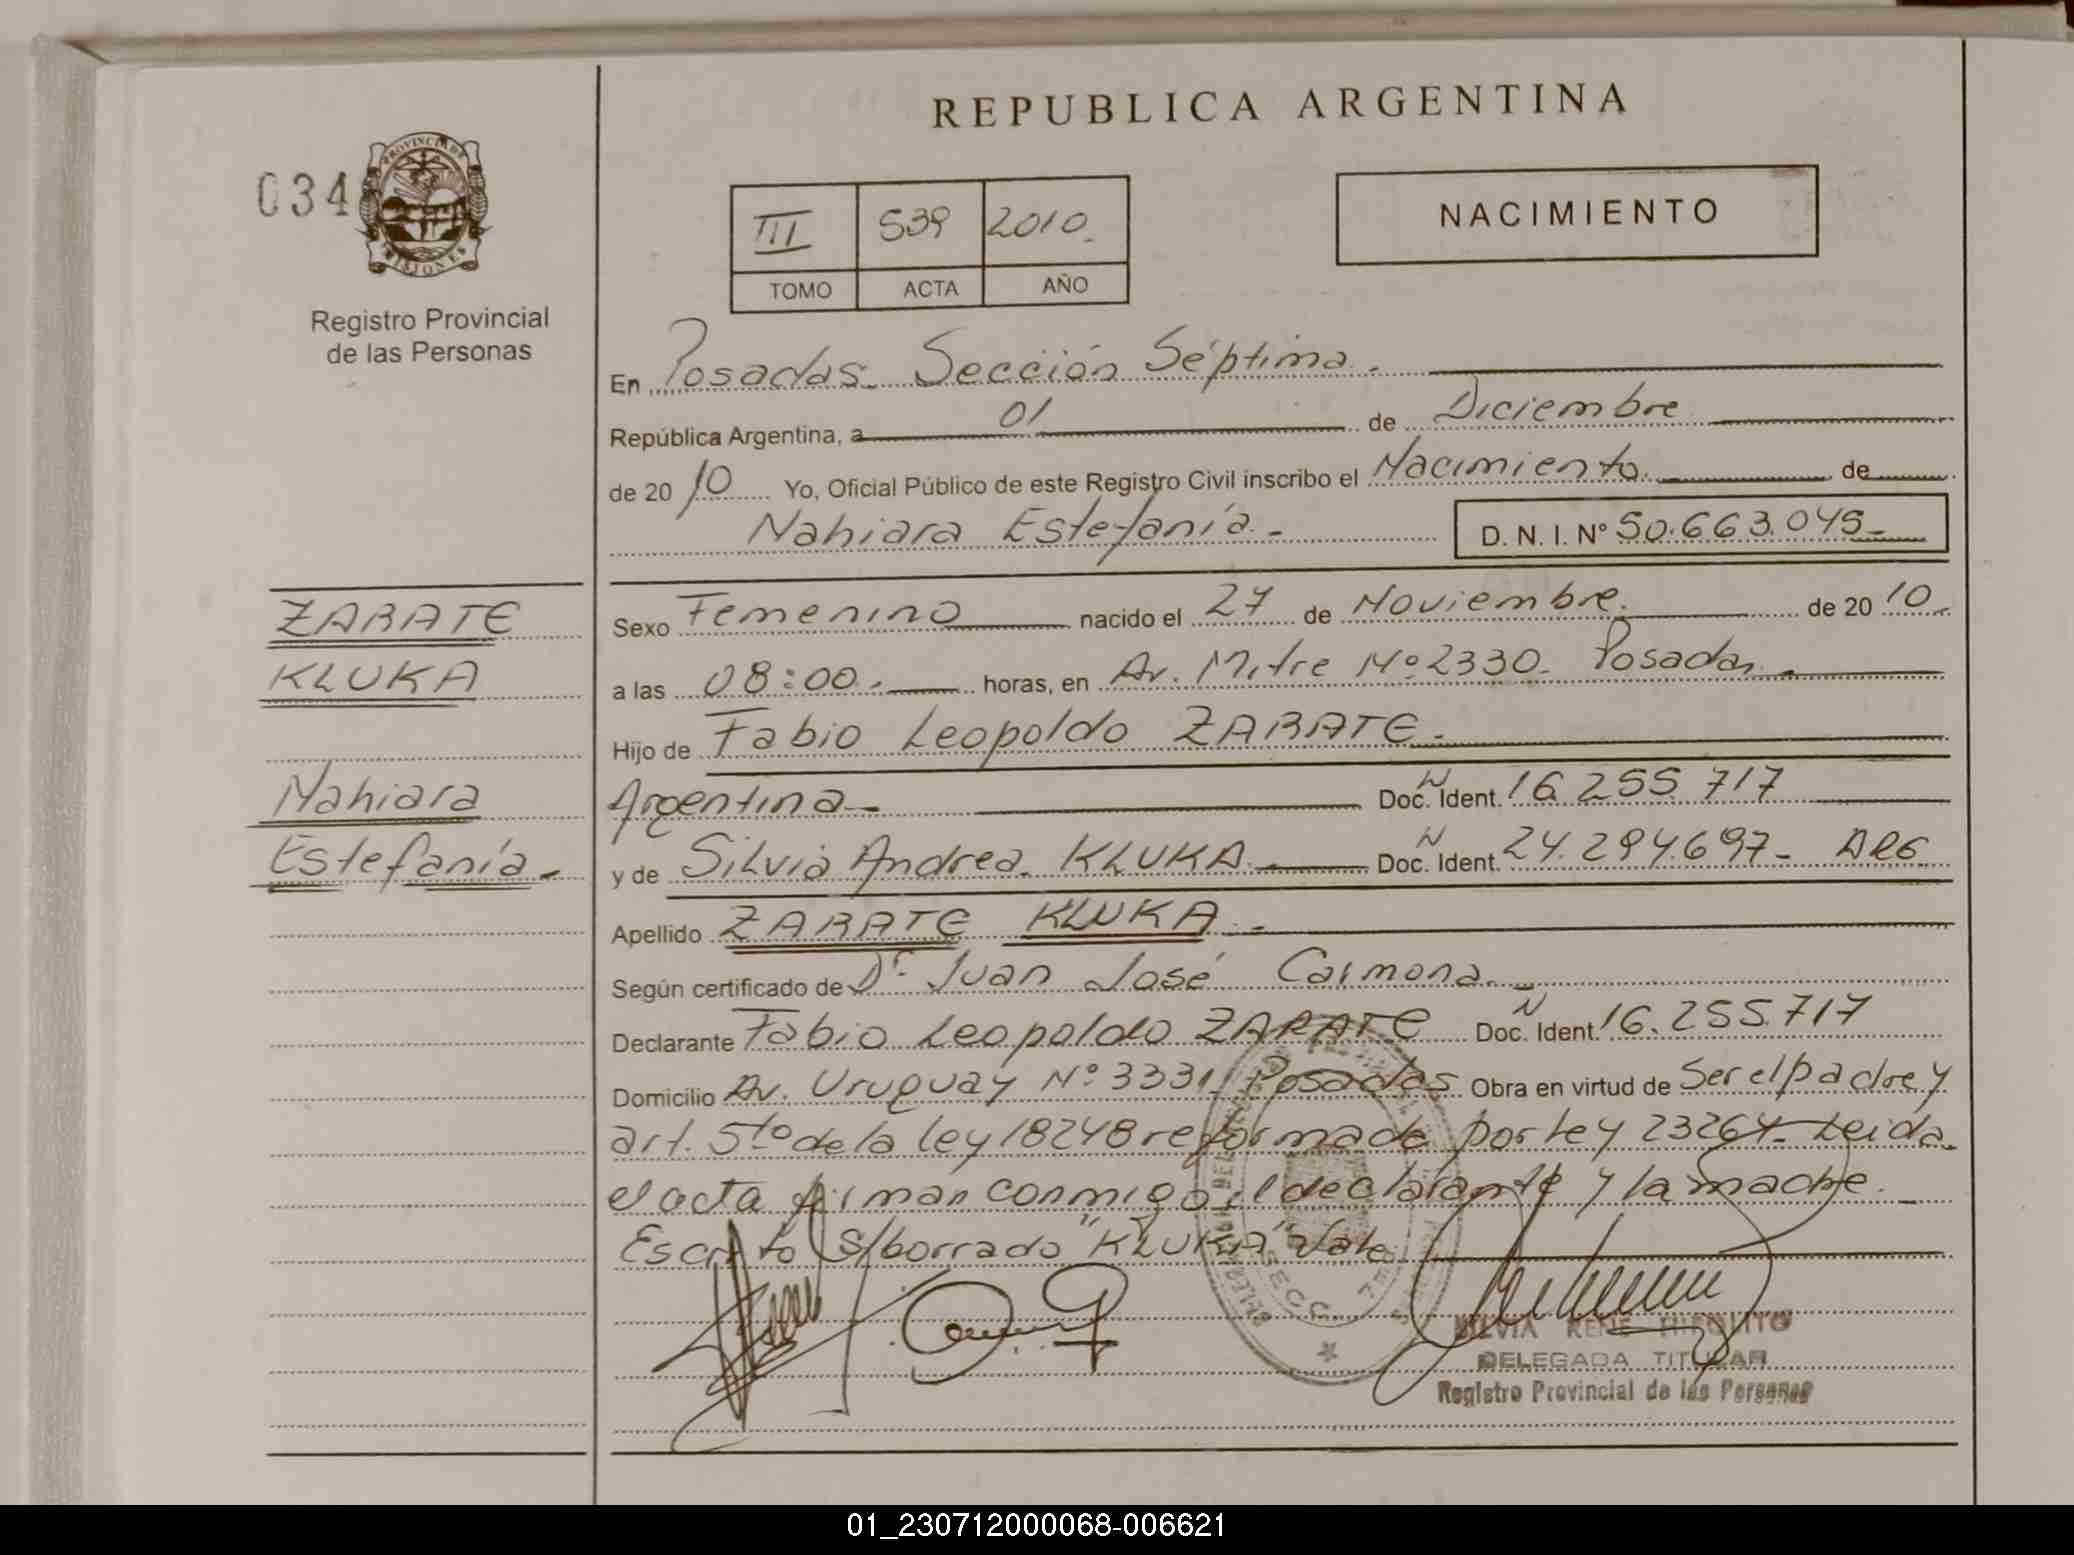 REPUBLICA ARGENTINA
034
PROVINCIA DE
MISIONES
Registro Provincial
de las Personas
III 539 2010.
TOMO ACTA AÑO
NACIMIENTO
En Posadas. Sección Séptima.
República Argentina, a 01 de Diciembre
de 2010 Yo, Oficial Público de este Registro Civil inscribo el Nacimiento de
Nahiara Estefanía.- D. N. I. N° 50.663.045-
ZARATE
KLUKA
Nahiara
Estefanía.-
Sexo Femenino nacido el 27 de Noviembre. de 2010.
a las 08:00. horas, en Av. Mitre Nº 2330. Posadas.-
Hijo de Fabio Leopoldo ZARATE.
Argentina- Doc. N Ident. 16 255 717
y de Silvia Andrea KLUKA.- Doc. N Ident. 24.294.697- ARG
Apellido ZARATE KLUKA.-
Según certificado de Dr. Juan José Carmona.-
Declarante Fabio Leopoldo ZARATE Doc. N Ident. 16.255.717
Domicilio Av. Uruguay Nº 3331 Posadas Obra en virtud de Ser el padre y
art. 5to de la ley 18248 reformada por ley 23264- Leída
el acta firman conmigo el declarante y la madre.
Escrito s/borrado "KLUKA" Vale
SECC. 7ma
SILVIA RENE
DELEGADA TITULAR
Registro Provincial de las Personas
01_230712000068-006621